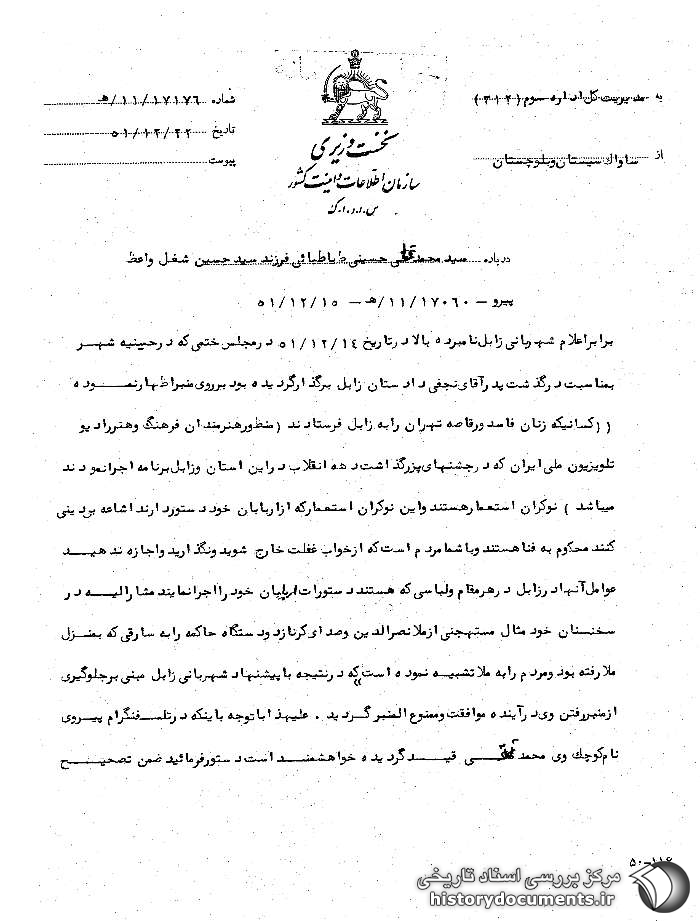 به مدیریت کل اداره سوم (۳۱۲)
از ساواک سیستان و بلوچستان
نخست وزیری
سازمان اطلاعات و امنیت کشور
س.ا.و.ا.ک
شماره ۱۱/۱۷۱۷۶/هـ
تاریخ ۵۱/۱۲/۲۲
پیوست
درباره سید محمدتقی حسینی طباطبائی فرزند سید حسین شغل واعظ
پیرو - ۱۱/۱۷۰۶۰/هـ - ۵۱/۱۲/۱۵
برابر اعلام شهربانی زابل نامبرده بالا در تاریخ ۵۱/۱۲/۱۴ در مجلس ختمی که در حسینیه شهر
بمناسبت درگذشت پدر آقای نجفی دادستان زابل برگذار گردیده بود بر روی منبر اظهار نموده
((کسانیکه زنان فاسد و رقاصه تهران را به زابل فرستادند (منظور هنرمندان فرهنگ و هنر رادیو
تلویزیون ملی ایران که در جشنهای بزرگداشت دهه انقلاب در این استان و زابل برنامه اجرا نمودند
میباشد) نوکران استعمار هستند و این نوکران استعمار که از اربابان خود دستور دارند اشاعه بی دینی
کنند محکوم به فنا هستند و با شما مردم است که از خواب غفلت خارج شوید و نگذارید و اجازه ندهید
عوامل آنها در زابل در هر مقام و لباسی که هستند دستورات اربابان خود را اجرا نمایند مشارالیه در
سخنان خود مثال مستهجنی از ملانصرالدین و صدای کرنا زد و دستگاه حاکمه را به سارقی که بمنزل
ملا رفته بود و مردم را به ملا تشبیه نموده است)) که در نتیجه با پیشنهاد شهربانی زابل مبنی بر جلوگیری
از منبر رفتن وی در آینده موافقت و ممنوع المنبر گردید. علیهذا با توجه باینکه در تلفنگرام پیروی
نام کوچک وی محمد قید گردیده خواهشمند است دستور فرمائید ضمن تصحیح
۵۰-۱۱۶
مرکز بررسی اسناد تاریخی
historydocuments.ir